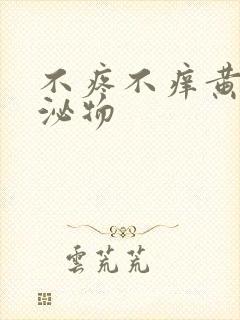 不疼不痒黄
泌物
雲荒荒